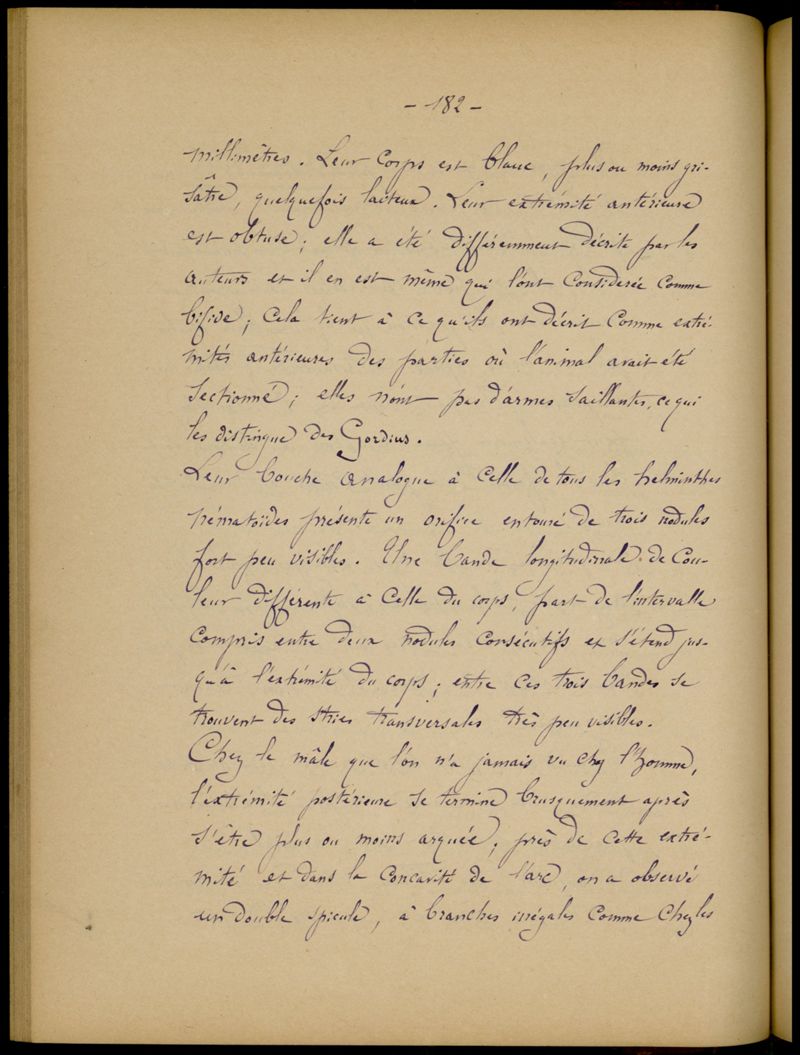 - 182 -
millimêtres. Leur corps est blanc, plus ou moins gri-
sâtre, quelquefois laiteux. Leur extrémité antérieure
est obtuse; elle a été différemment décrite par les
auteurs et il en est même qui l'ont considerée comme
bifide; cela tient à ce qu'ils ont décrit comme extré-
mités antérieures des parties où l'animal avait été
sectionné; elles n'ont pas d'armes saillantes, ce qui
les distingue des Gordius.
Leur bouche analogue à celle de tous les helminthes
nématoïdes présente un orifice entouré de trois nodules
fort peu visibles. Une bande longitudinale de cou-
leur différente à celle du corps, part de l'intervalle
compris entre deux nodules consécutifs et s'étend jus-
qu'à l'extrémité du corps; entre ces trois bandes se
trouvent des stries transversales très peu visibles.
Chez le mâle que l'on n'a jamais vu chez l'homme,
l'extrémité postérieure se termine brusquement après
s'être plus ou moins arquée; près de cette extré-
mité et dans la concavité de l'arc, on a observé
un double spicule, à branches inégales comme chez les